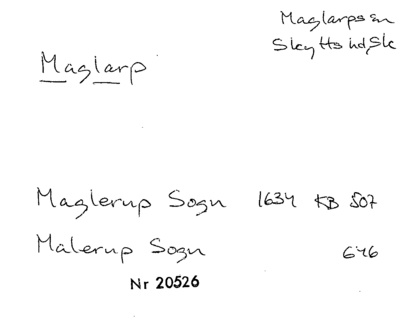 Maglarps sn
Skytts hd, Sk
Maglarp
Maglerup Sogn 1634 KB 507
Malerup Sogn 646
Nr 20526